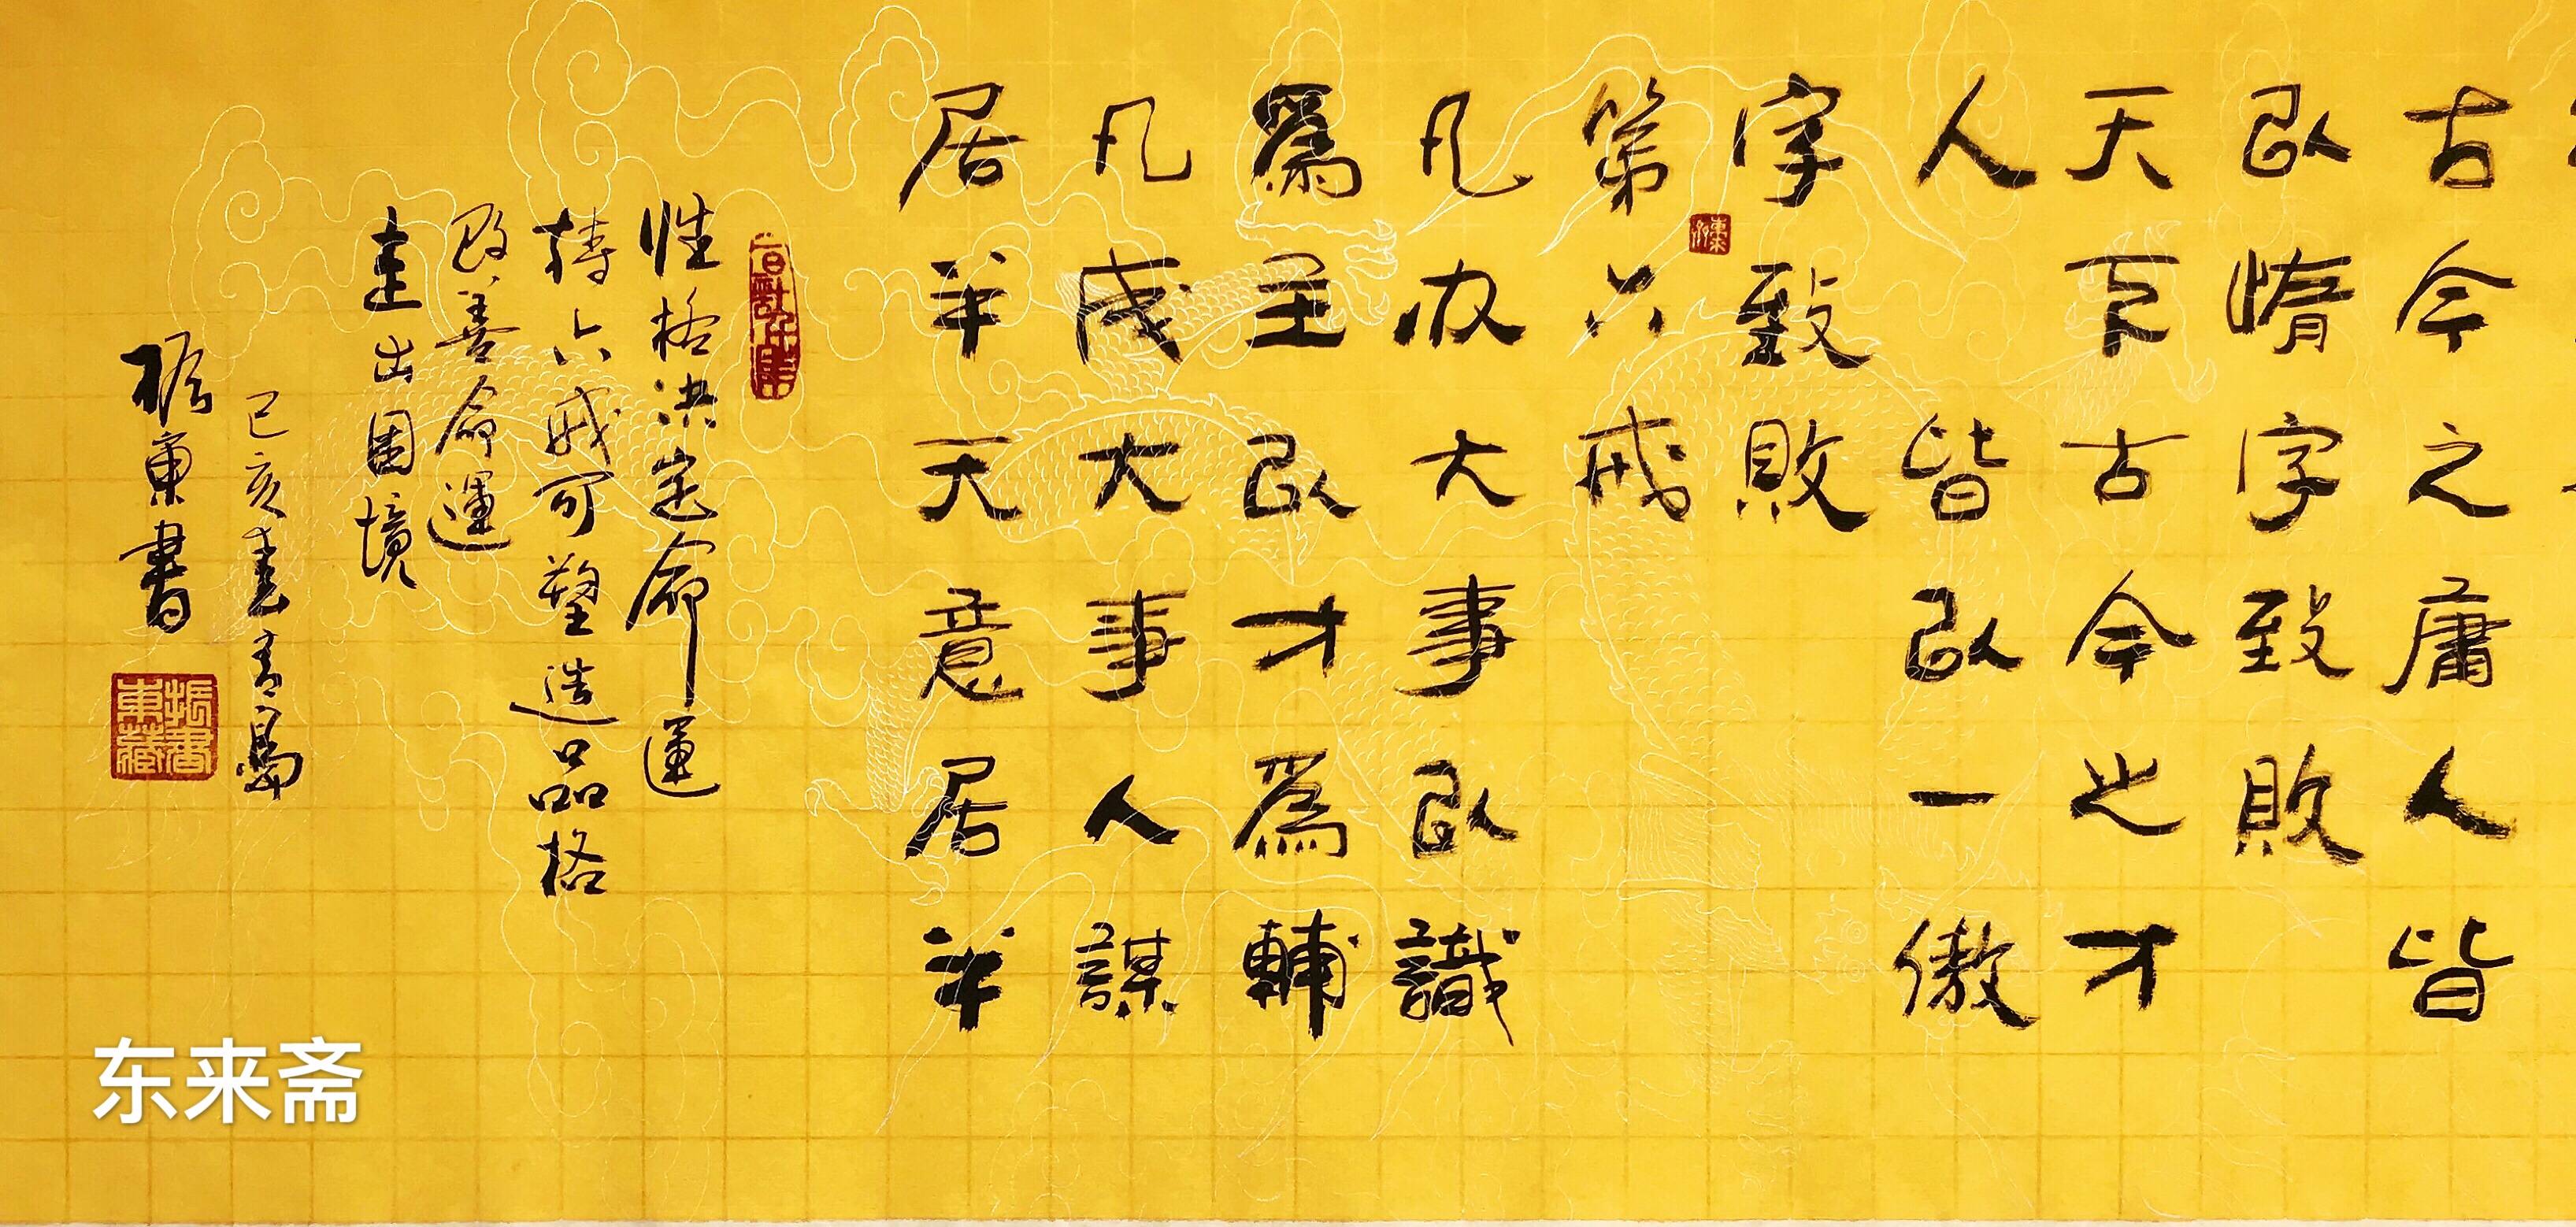 古今之庸人皆
以惰字致敗
天下古今之才
人皆以一傲
字致敗
第六戒
凡办大事以識
為主以才為輔
凡成大事人謀
居半天意居半
性格决定命運
持六戒可塑造品格
改善命運
走出困境
己亥春青島
振東書
振東書藏
东来斋